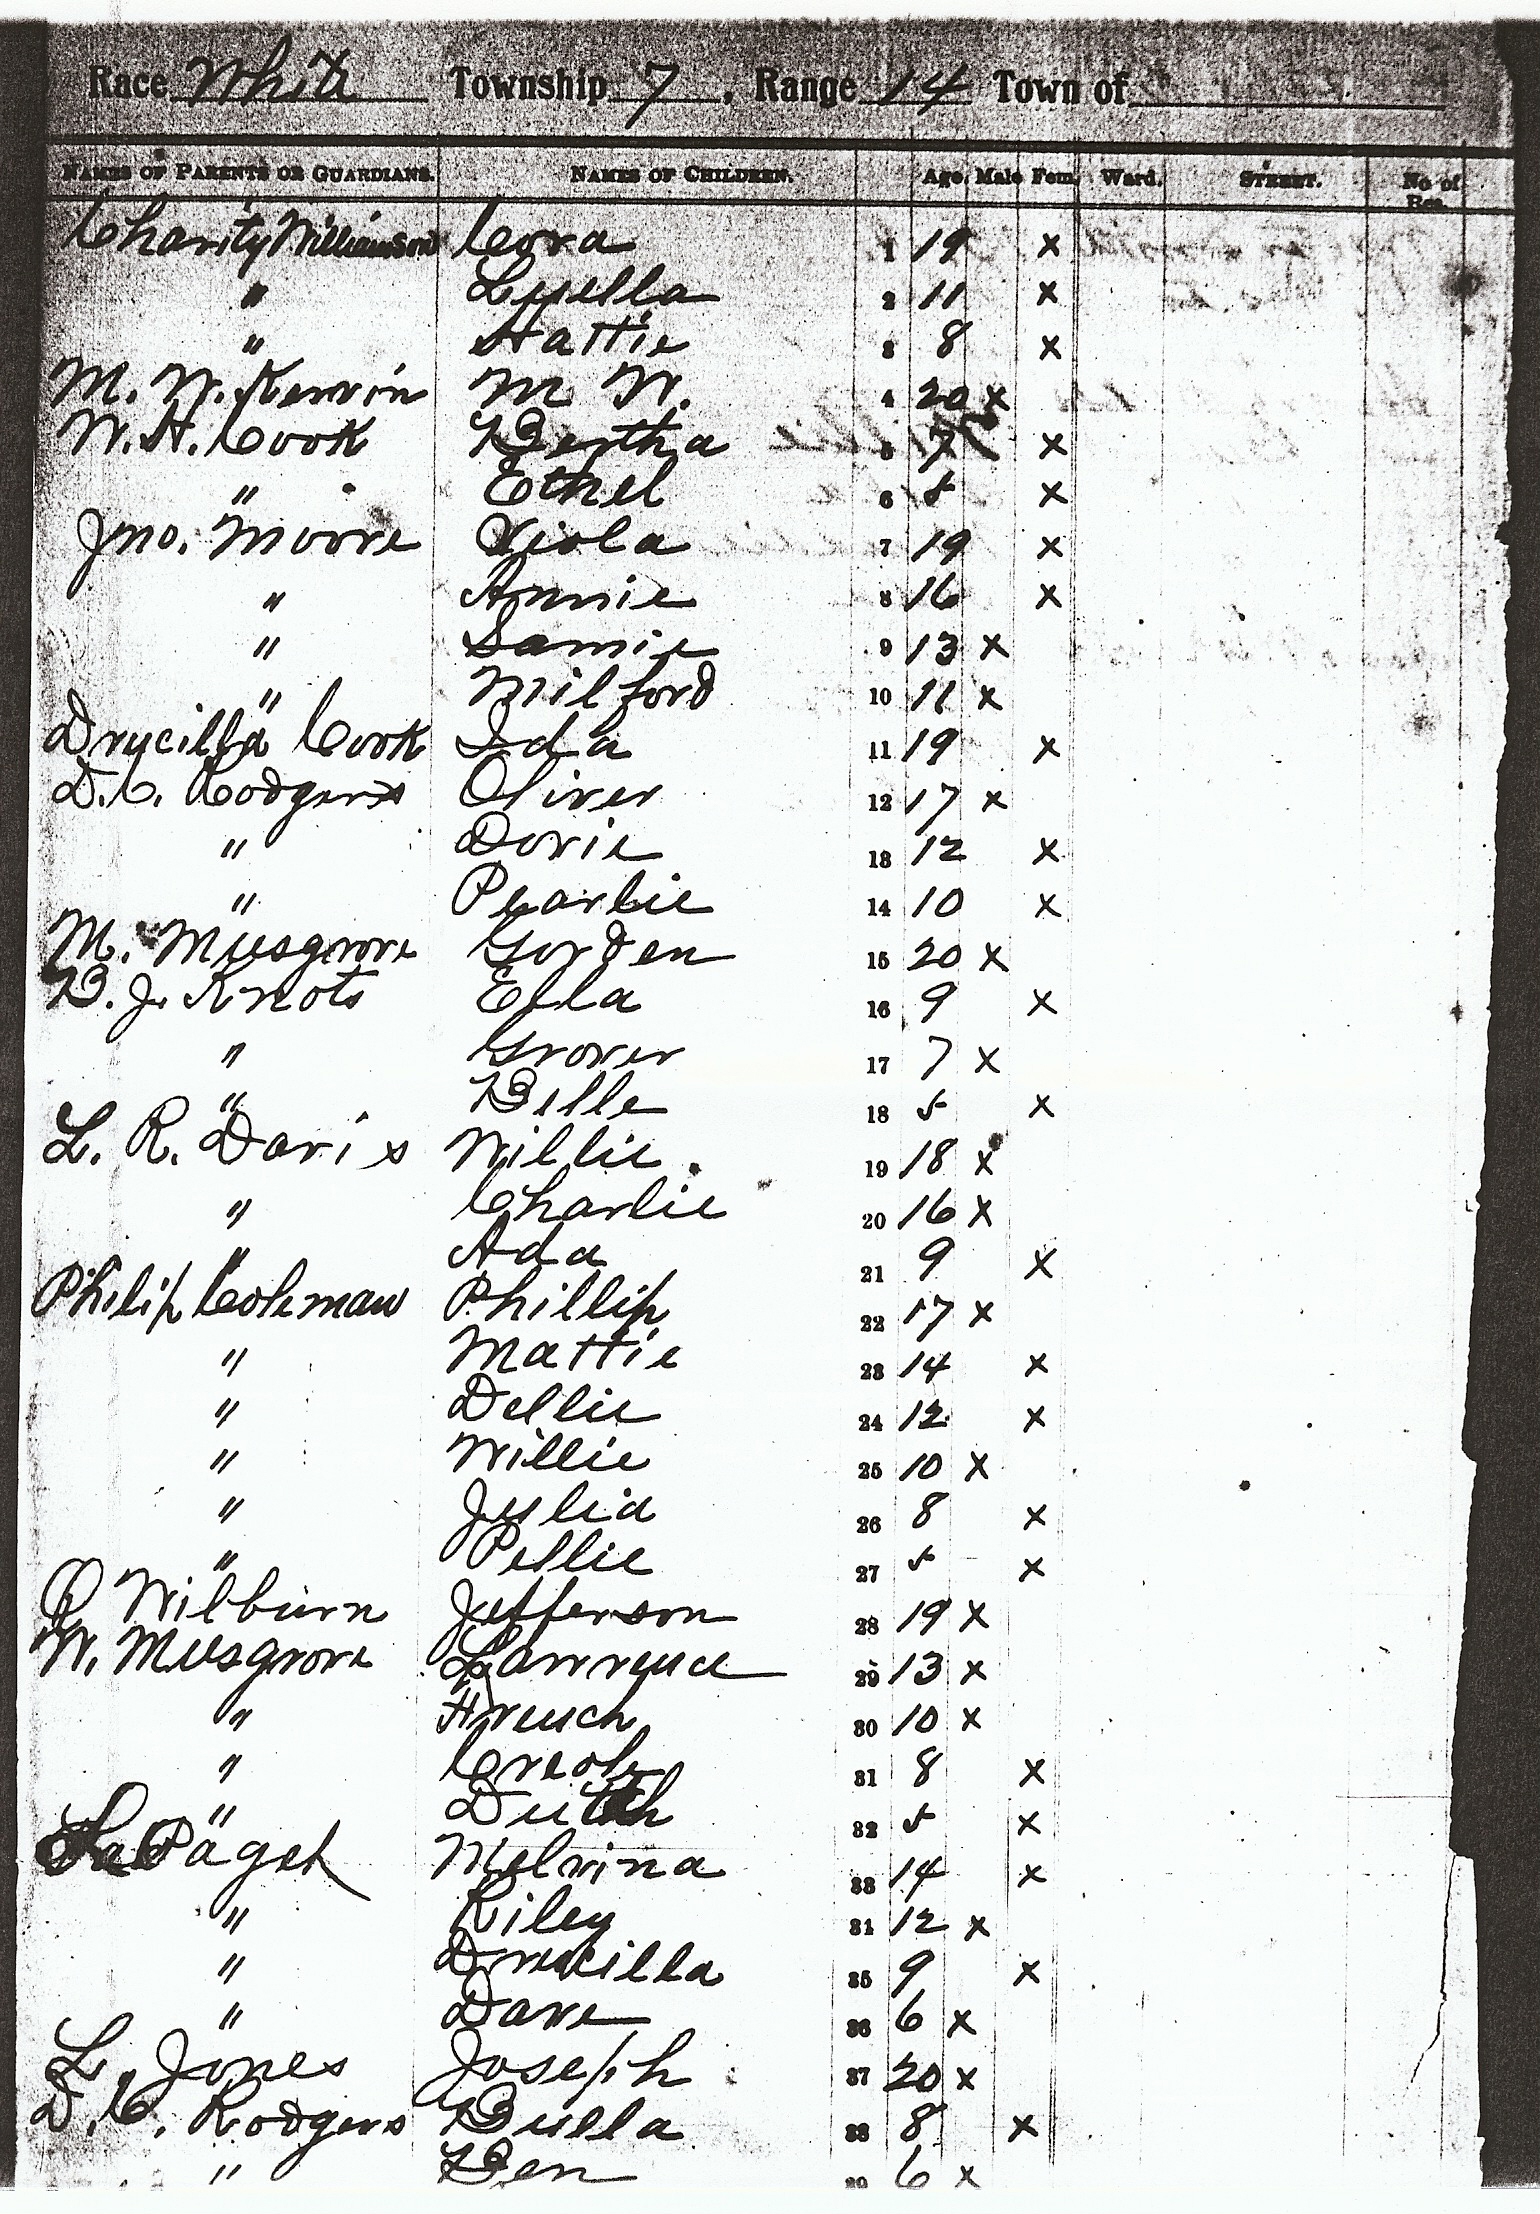 Race White Township 7, Range 14 Town of
NAMES OF PARENTS OR GUARDIANS. NAMES OF CHILDREN. Age Male Fem. Ward. STREET. No of Res.
Charity Williamson Cora 1 19 x
" Luella 2 11 x
" Hattie 3 8 x
M. W. Kervin M W. 4 20 x
W. H. Cook Bertha 5 7 x
" Ethel 6 5 x
Jno. Moore Viola 7 19 x
" Annie 8 16 x
" Samie 9 13 x
" Milford 10 11 x
Drucilla Cook Ida 11 19 x
D. C. Rodgers Oliver 12 17 x
" Dovie 13 12 x
" Pearlie 14 10 x
M. Musgrove Gorden 15 20 x
B. J. Knots Ella 16 9 x
" Grover 17 7 x
" Belle 18 5 x
L. R. Davis Willie 19 18 x
" Charlie 20 16 x
" Ada 21 9 x
Philip Coleman Phillip 22 17 x
" Mattie 23 14 x
" Dellie 24 12 x
" Willie 25 10 x
" Julia 26 8 x
" Pellie 27 5 x
Wilburn Jefferson 28 19 x
W. Musgrove Lawrence 29 13 x
" French 30 10 x
" Creole 31 8 x
" Dutch 32 5 x
Paget Melvina 33 14 x
" Riley 34 12 x
" Drucilla 35 9 x
" Dave 36 6 x
L. Jones Joseph 37 20 x
D. C. Rodgers Bulla 38 8 x
" Ben 39 6 x